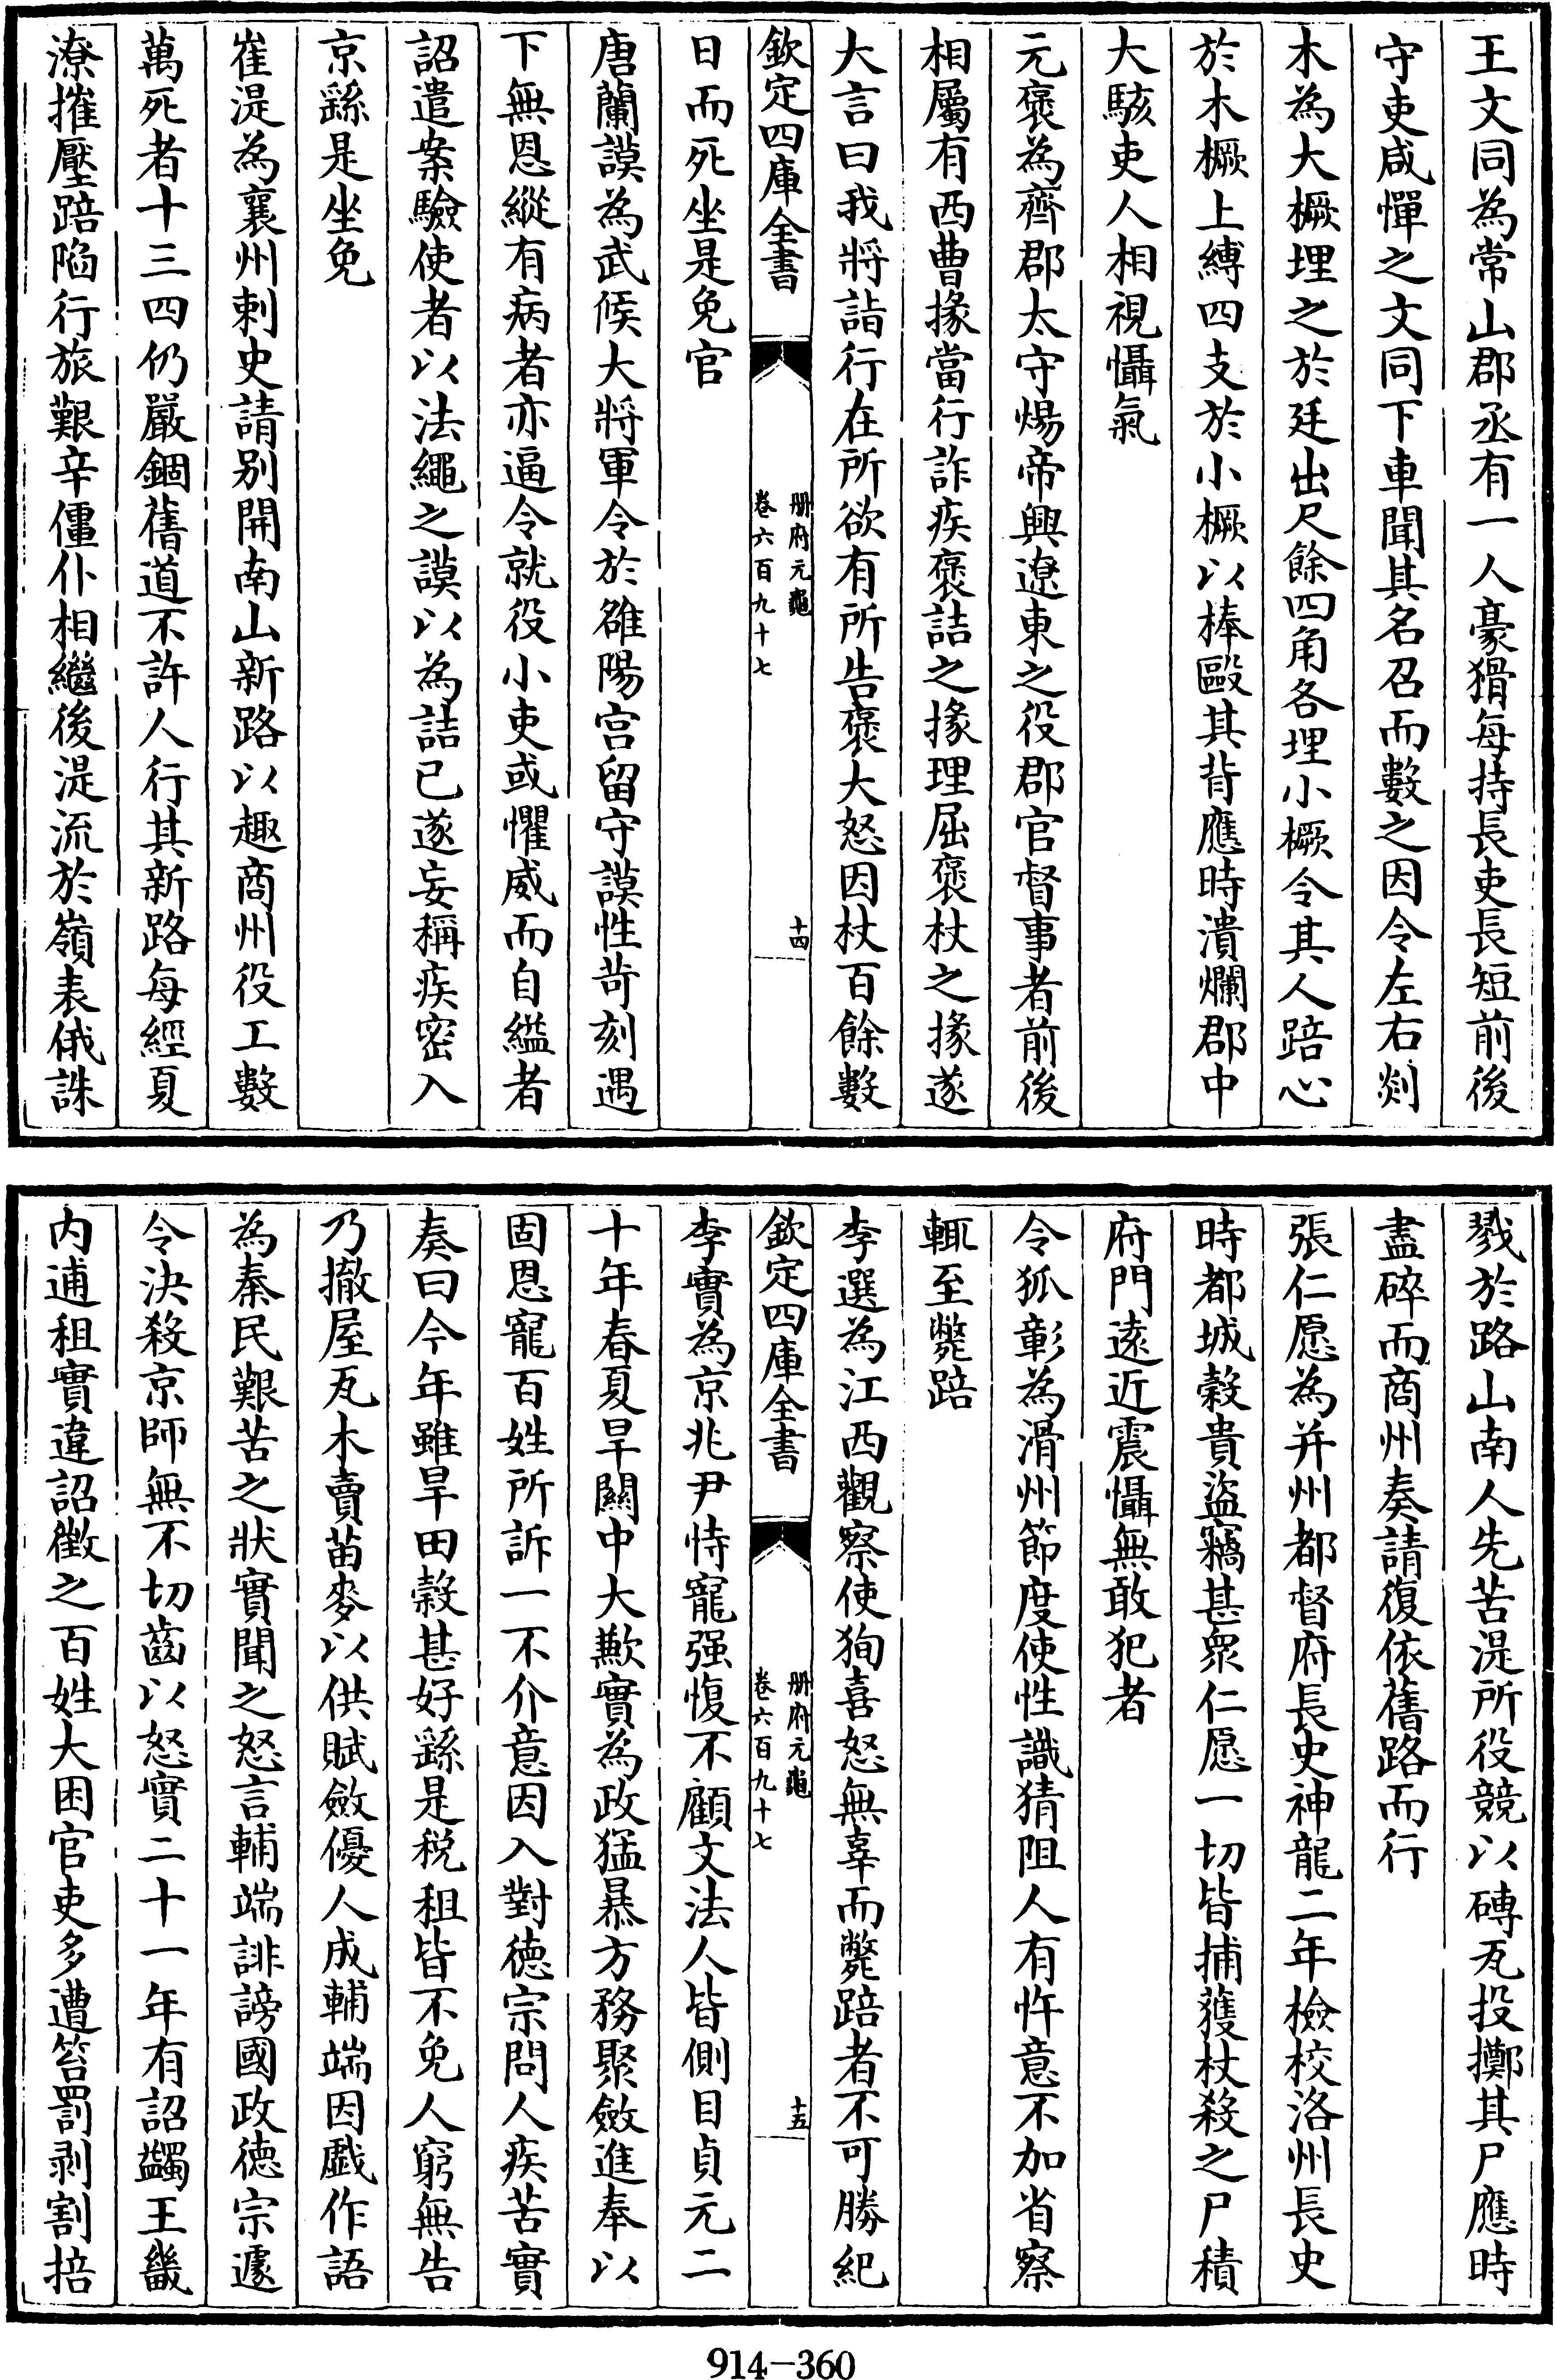 王文同為常山郡丞有一人豪猾每持長吏長短前後
守吏咸憚之文同下車聞其名召而數之因令左右剡
木為大橛埋之於廷出尺餘四角各埋小橛令其人踣心
於木橛上縛四支於小橛以棒毆其背應時潰爛郡中
大駭吏人相視懾氣
元褒為齊郡太守煬帝興遼東之役郡官督事者前後
相屬有西曹掾當行詐疾褒詰之掾理屈褒杖之掾遂
大言曰我將詣行在所欲有所告褒大怒因杖百餘數
欽定四庫全書
册府元龜
卷六百九十七
十四
日而死坐是免官
唐蘭謨為武候大將軍令於雒陽宮留守謨性苛刻遇
下無恩縱有病者亦逼令就役小吏或懼威而自縊者
詔遣案驗使者以法繩之謨以為詰己遂妄稱疾密入
京繇是坐免
崔湜為襄州刺史請别開南山新路以趣商州役工數
萬死者十三四仍嚴錮舊道不許人行其新路每經夏
潦摧壓踣陷行旅艱辛僵仆相繼後湜流於嶺表俄誅
戮於路山南人先苦湜所役競以磚瓦投擲其尸應時
盡碎而商州奏請復依舊路而行
張仁愿為并州都督府長史神龍二年檢校洛州長史
時都城穀貴盜竊甚衆仁愿一切皆捕獲杖殺之尸積
府門遠近震懾無敢犯者
令狐彰為滑州節度使性識猜阻人有忤意不加省察
輒至斃踣
李選為江西觀察使狥喜怒無辜而斃踣者不可勝紀
欽定四庫全書
册府元龜
卷六百九十七
十五
李實為京兆尹恃寵强愎不顧文法人皆側目貞元二
十年春夏旱關中大歉實為政猛暴方務聚斂進奉以
固恩寵百姓所訴一不介意因入對德宗問人疾苦實
奏曰今年雖旱田穀甚好繇是税租皆不免人窮無告
乃撤屋瓦木賣苗麥以供賦斂優人成輔端因戲作語
為秦民艱苦之狀實聞之怒言輔端誹謗國政德宗遽
令決殺京師無不切齒以怒實二十一年有詔蠲王畿
内逋租實違詔徴之百姓大困官吏多遭笞罰剥割掊
914-360